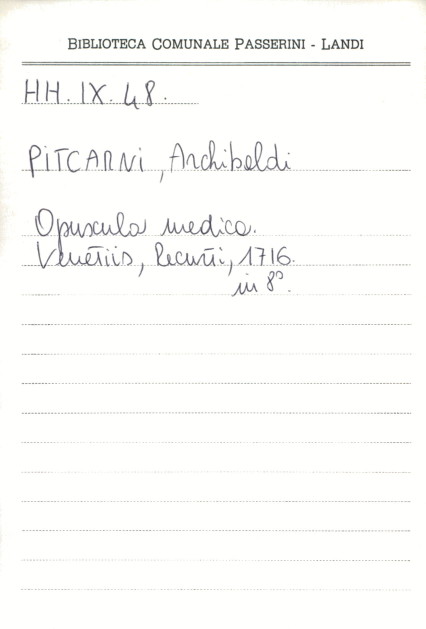 BIBLIOTECA COMUNALE PASSERINI - LANDI
HH. IX. 48.
PITCARNI, Archibaldi
Opuscula medica.
Venetiis, Recurti, 1716.
in 8°.